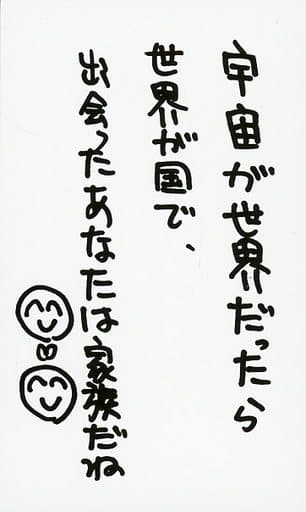 宇宙が世界だったら
世界が国で、
出会ったあなたは家族だね